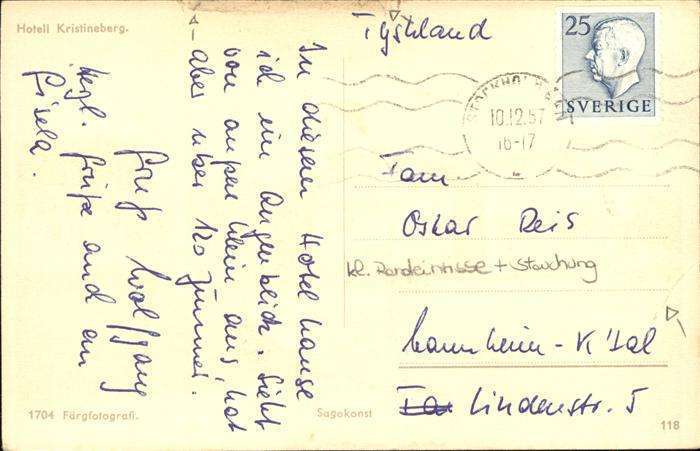 Hotell Kristineberg.
In diesem Hotel hause
ich im Augenblick. Sieht
von außen klein aus, hat
aber über 120 Zimmer.
Gruß Wolfgang
Herzl. Grüße auch an
Gisela.
Tyskland
25
SVERIGE
STOCKHOLM
10.12.57
16-17
Fam
Oskar Reis
kl. Randeinrisse + Stauchung
Mannheim - K'tal
Lindenstr. 5
1704 Färgfotografi.
Sagokonst
118